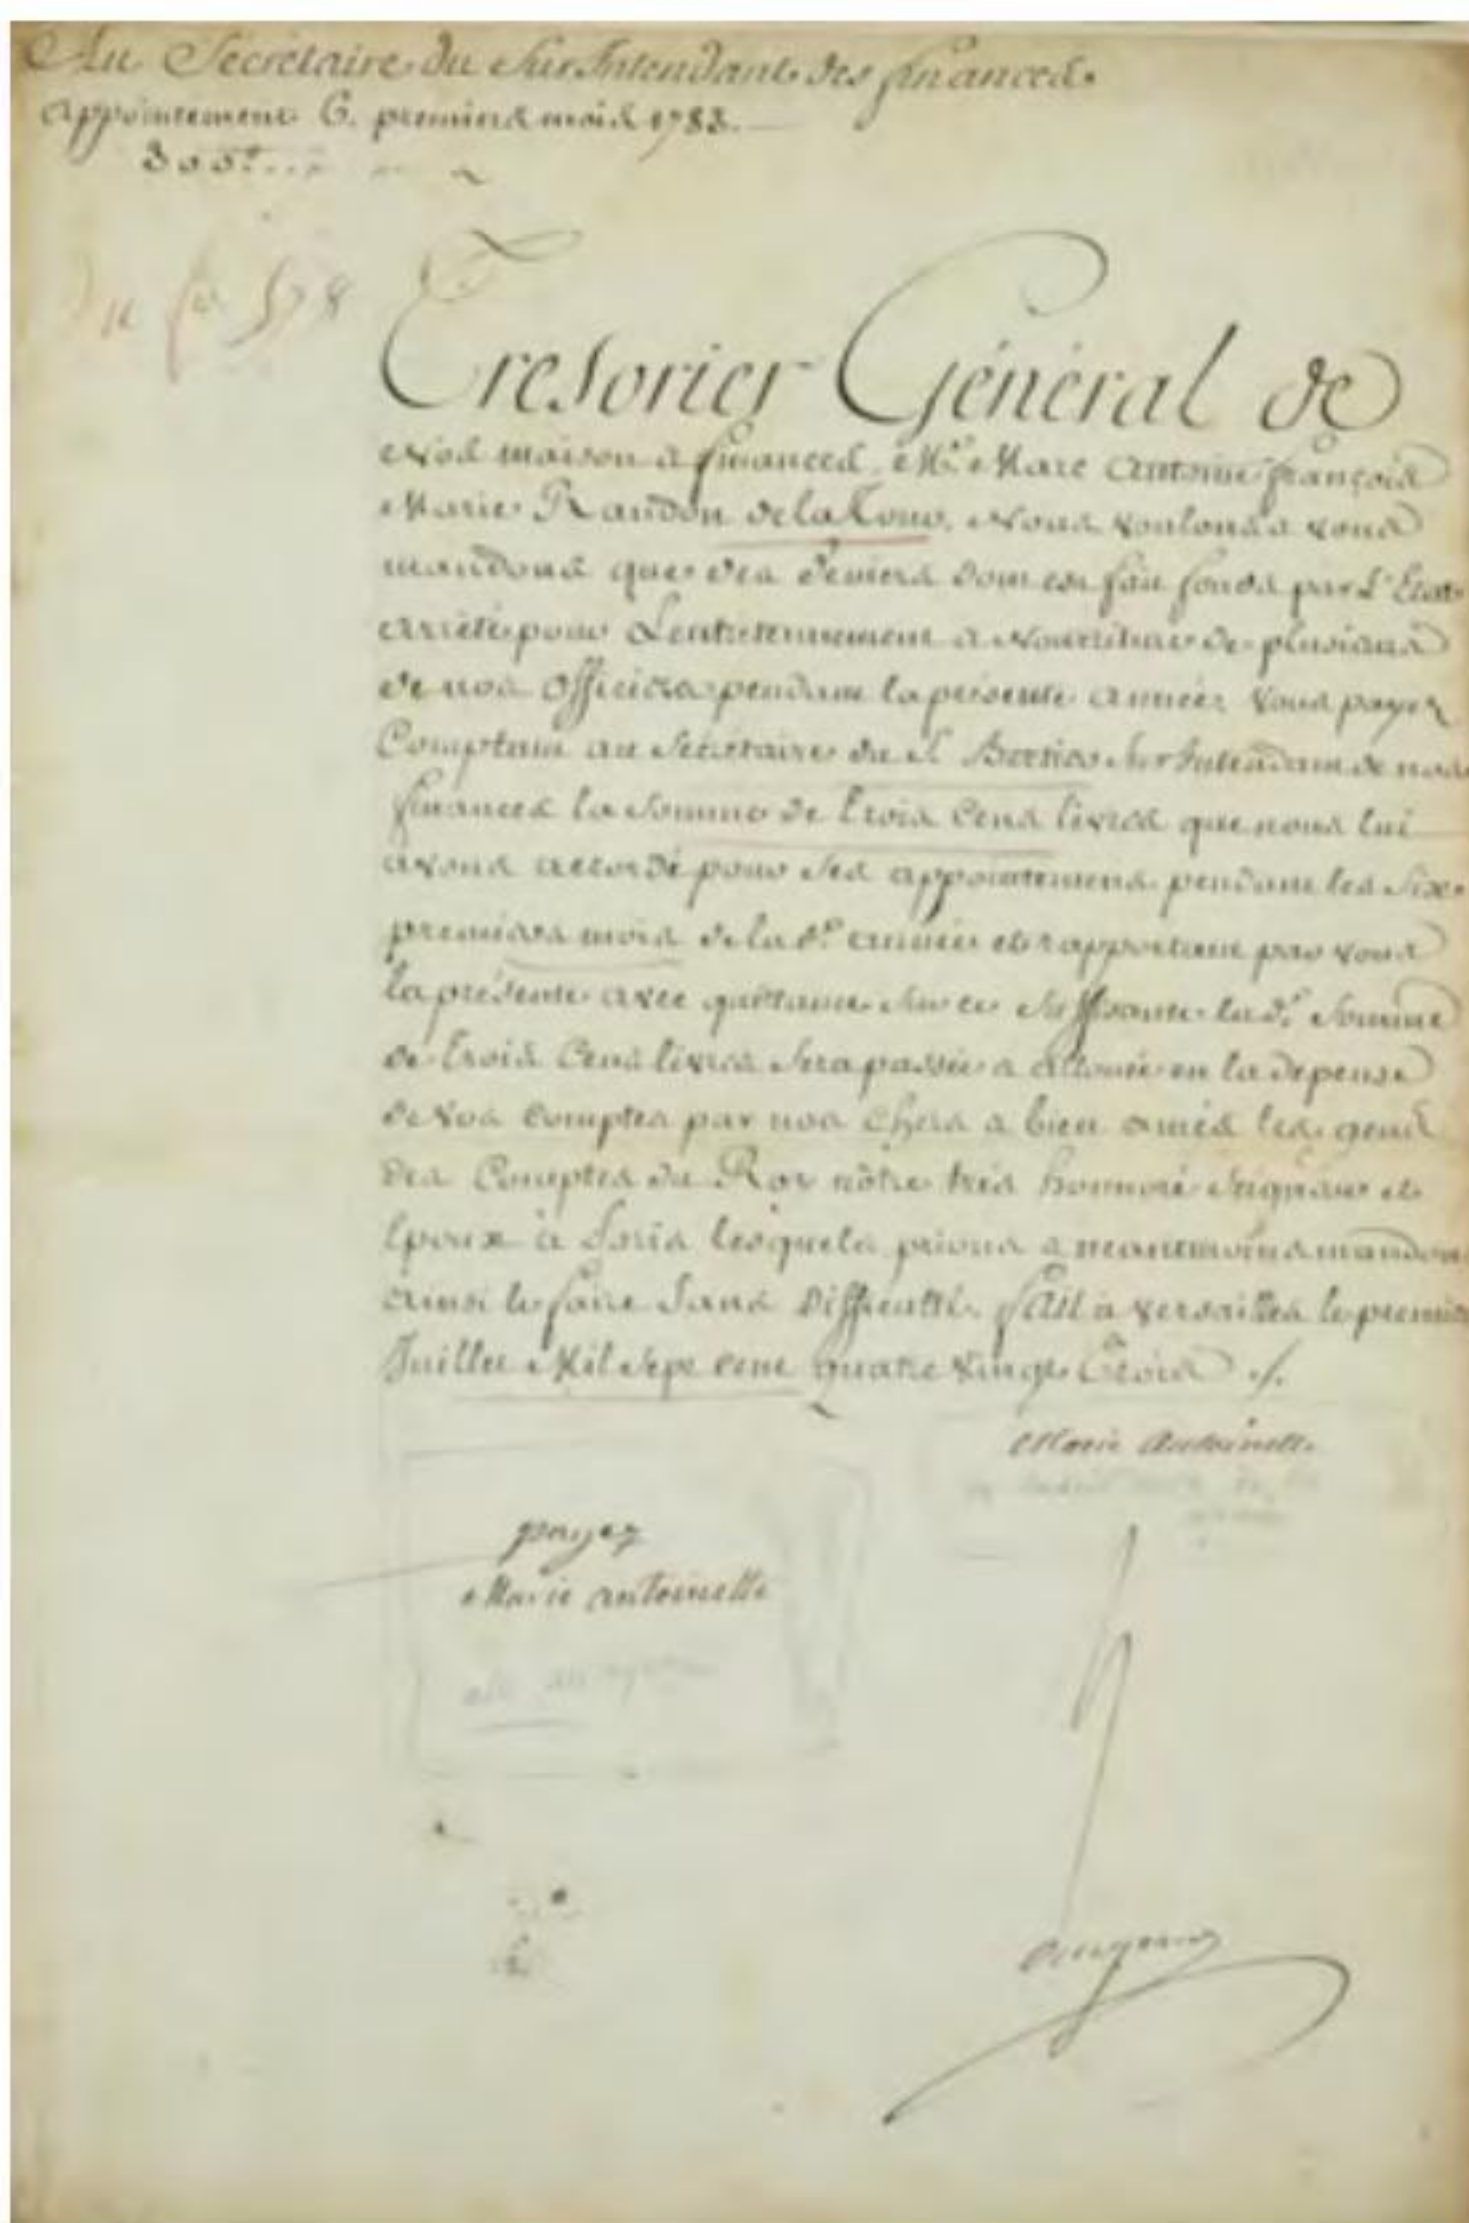 Au Secretaire du Sur Intendant des finances.
appointement 6. premiers mois 1783.
300#...
Tresorier Général de
nos maison & finances, Me. Marc Antoine françois
Marie Randon de la Tour, Nous voulons & vous
mandons que des deniers dont est fait fonds par L'Etat
arrêté pour L'entretennement & Nourriture de plusieurs
de nos Officiers pendant la présente année, vous payez
Comptant au Secretaire du S. Sur Intendant de nos
finances la somme de trois cens livres que nous lui
avons accordé pour ses appointemens pendant les six
premiers mois de la de. année et rapportant par vous
la présente avec quittance sur ce suffisante lade. somme
de trois cens livres sera passée & allouée en la dépense
de vos comptes par nos chers & bien amés les gens
des Comptes du Roy nôtre très honnoré seigneur et
Epoux à Paris lesquels prions & neantmoins mandons
ainsi le faire sans difficulté. fait à versailles le premier
Juillet Mil sept cent quatre vingt trois ./.
Marie Antoinette
payez
Marie antoinette
augeard